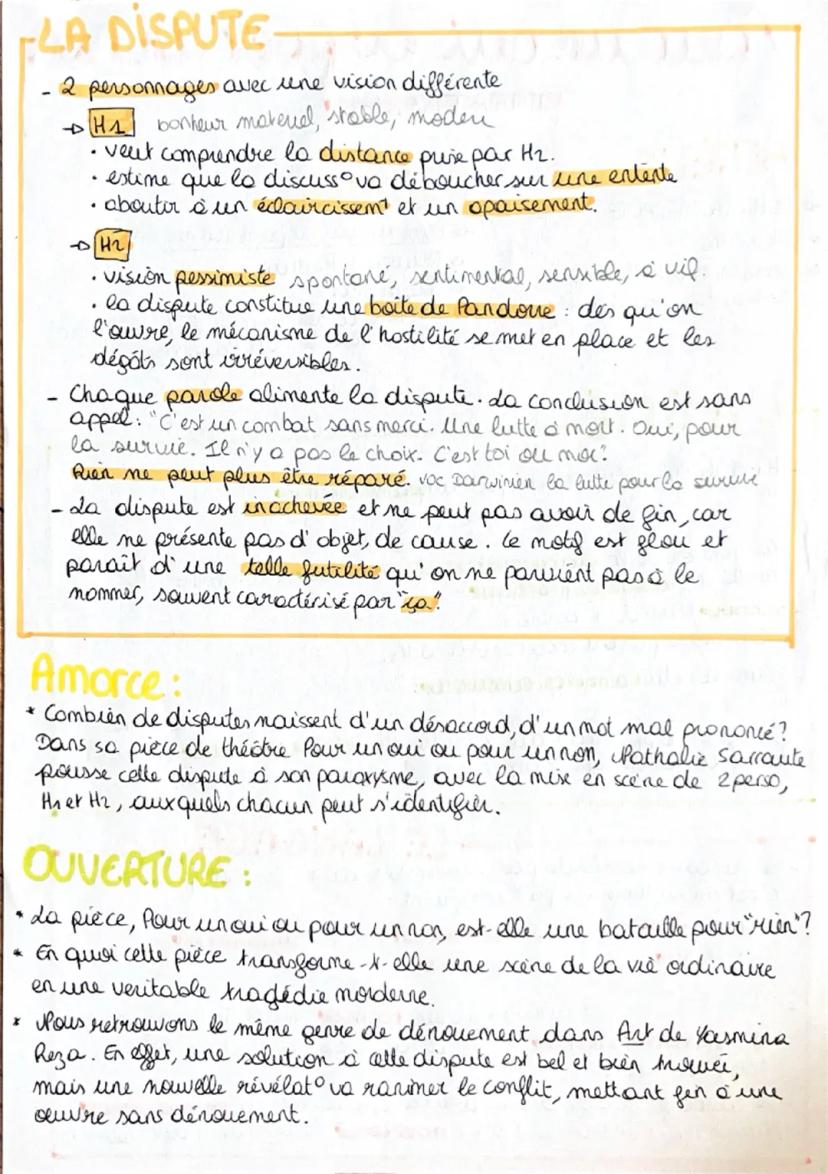 LA DISPUTE
- 2 personnages avec une vision différente
→ H1 bonheur matériel, stable, modeu
• veut comprendre la distance prise par H2.
• estime que la discuss° va déboucher sur une entente
• aboutir à un éclaircissemt et un apaisement.
→ H2
• vision pessimiste spontané, sentimental, sensible, à vif.
• la dispute constitue une boîte de Pandore : dès qu'on
l'ouvre, le mécanisme de l'hostilité se met en place et les
dégâts sont irréversibles.
- Chaque parole alimente la dispute. La conclusion est sans
appel : "C'est un combat sans merci. Une lutte à mort. Oui, pour
la survie. Il n'y a pas le choix. C'est toi ou moi"
Rien ne peut plus être réparé. voc Darwinien la lutte pour la survie
- La dispute est inachevée et ne peut pas avoir de fin, car
elle ne présente pas d'objet, de cause. Le motif est flou et
paraît d'une telle futilité qu'on ne parvient pas à le
nommer, souvent caractérisé par "ça".
Amorce :
* Combien de disputes naissent d'un désaccord, d'un mot mal prononcé ?
Dans sa pièce de théâtre Pour un oui ou pour un non, Nathalie Sarraute
pousse cette dispute à son paroxysme, avec la mise en scène de 2 perso,
H1 et H2, auxquels chacun peut s'identifier.
OUVERTURE :
* La pièce, Pour un oui ou pour un non, est-elle une bataille pour "rien" ?
* En quoi cette pièce transforme-t-elle une scène de la vie ordinaire
en une veritable tragédie morderne.
* Nous retrouvons le même genre de dénouement dans Art de Yasmina
Reza. En effet, une solution à cette dispute est bel et bien trouvée,
mais une nouvelle révélat° va ranimer le conflit, mettant fin à une
œuvre sans dénouement.